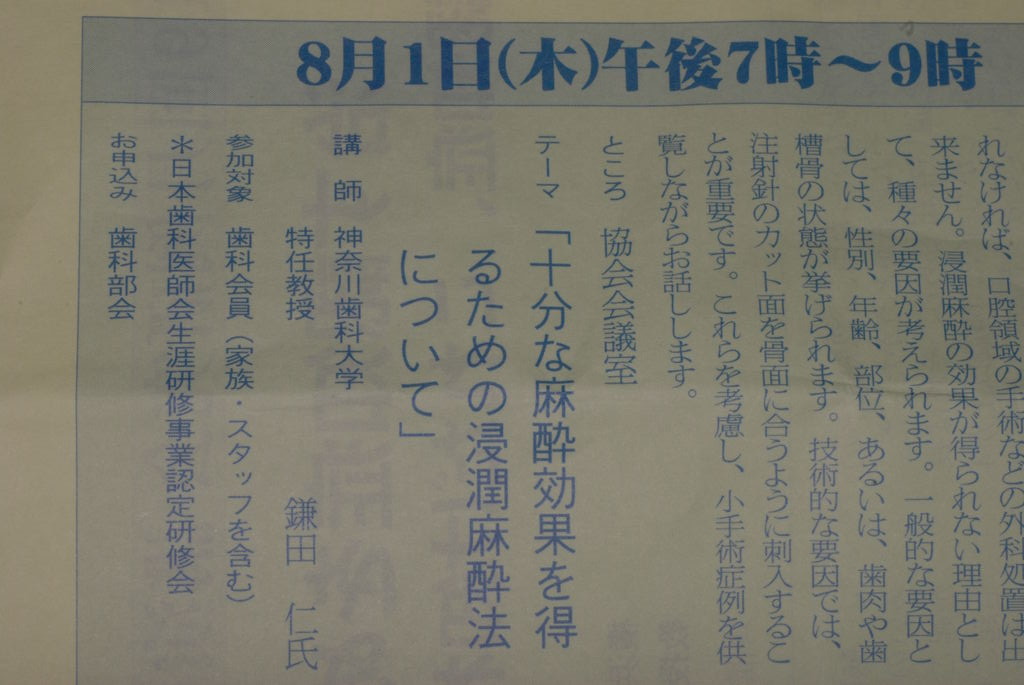 8月1日(木)午後7時〜9時
れなければ、口腔領域の手術などの外科処置は出
来ません。浸潤麻酔の効果が得られない理由とし
て、種々の要因が考えられます。一般的な要因と
しては、性別、年齢、部位、あるいは、歯肉や歯
槽骨の状態が挙げられます。技術的な要因では、
注射針のカット面を骨面に合うように刺入するこ
とが重要です。これらを考慮し、小手術症例を供
覧しながらお話しします。
ところ 協会会議室
テーマ 「十分な麻酔効果を得
るための浸潤麻酔法
について」
講師 神奈川歯科大学
特任教授 鎌田 仁氏
参加対象 歯科会員(家族・スタッフを含む)
＊日本歯科医師会生涯研修事業認定研修会
お申込み 歯科部会